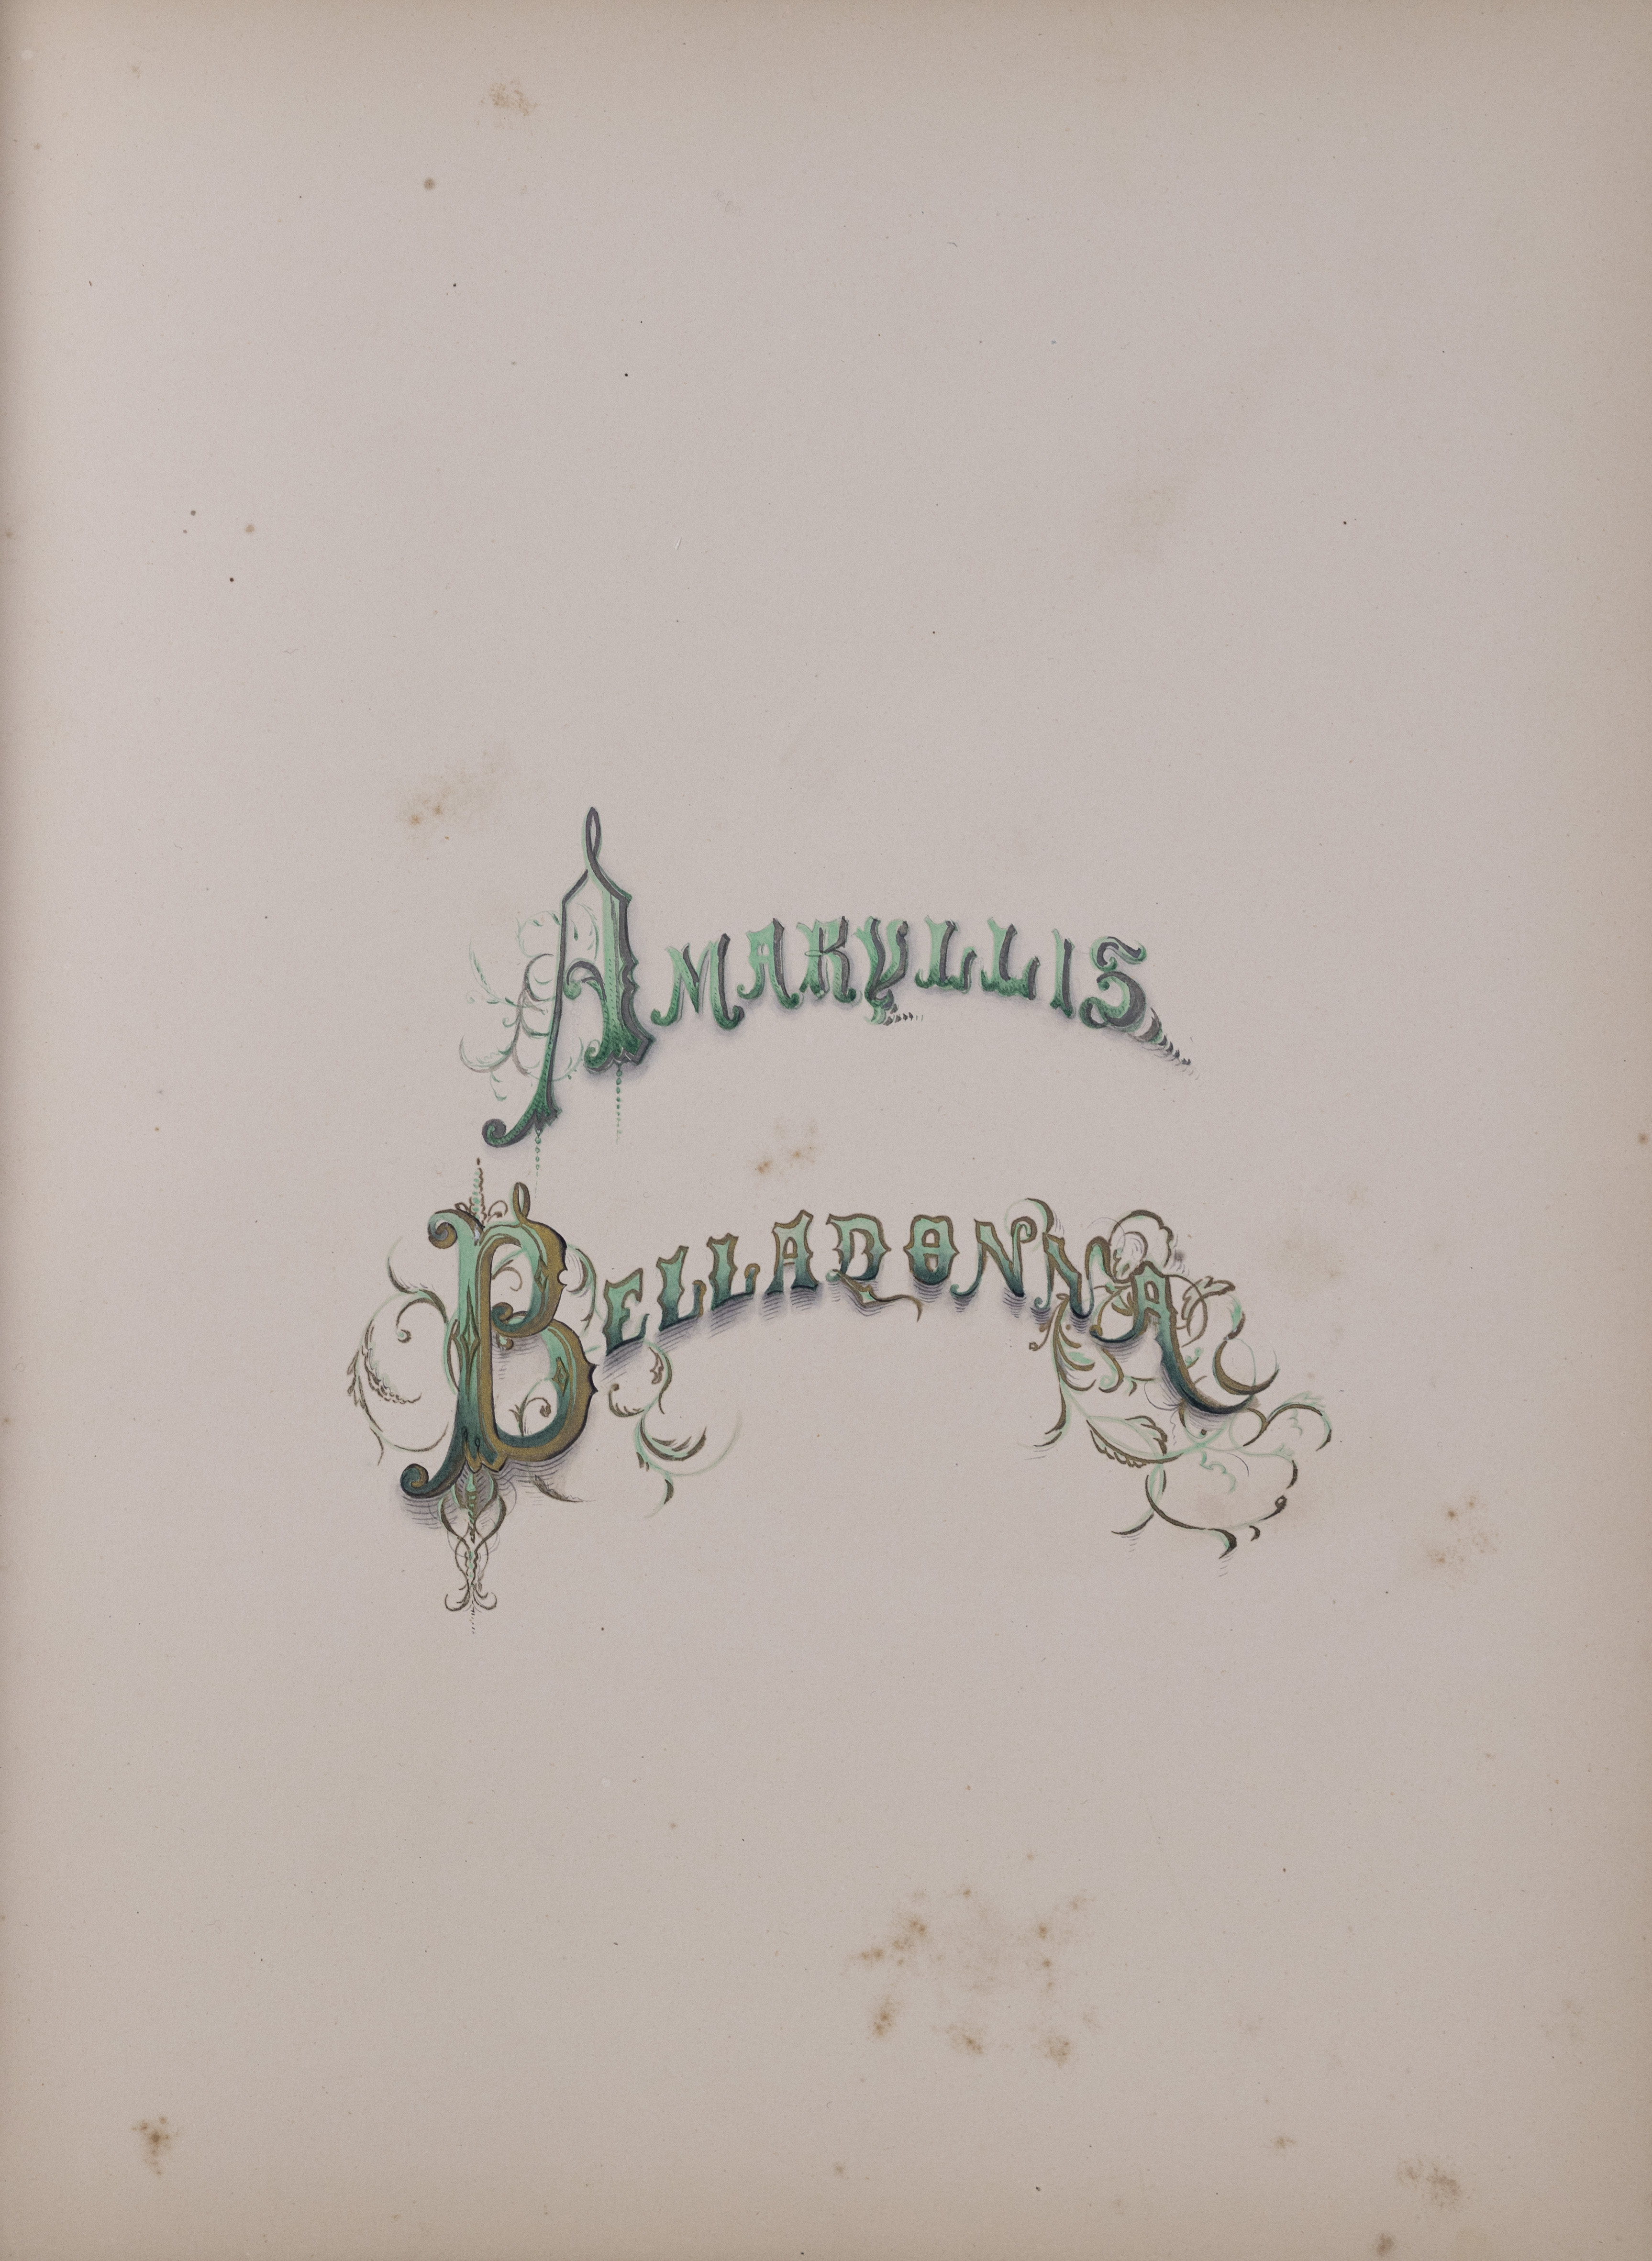 AMARYLLIS
BELLADONNA